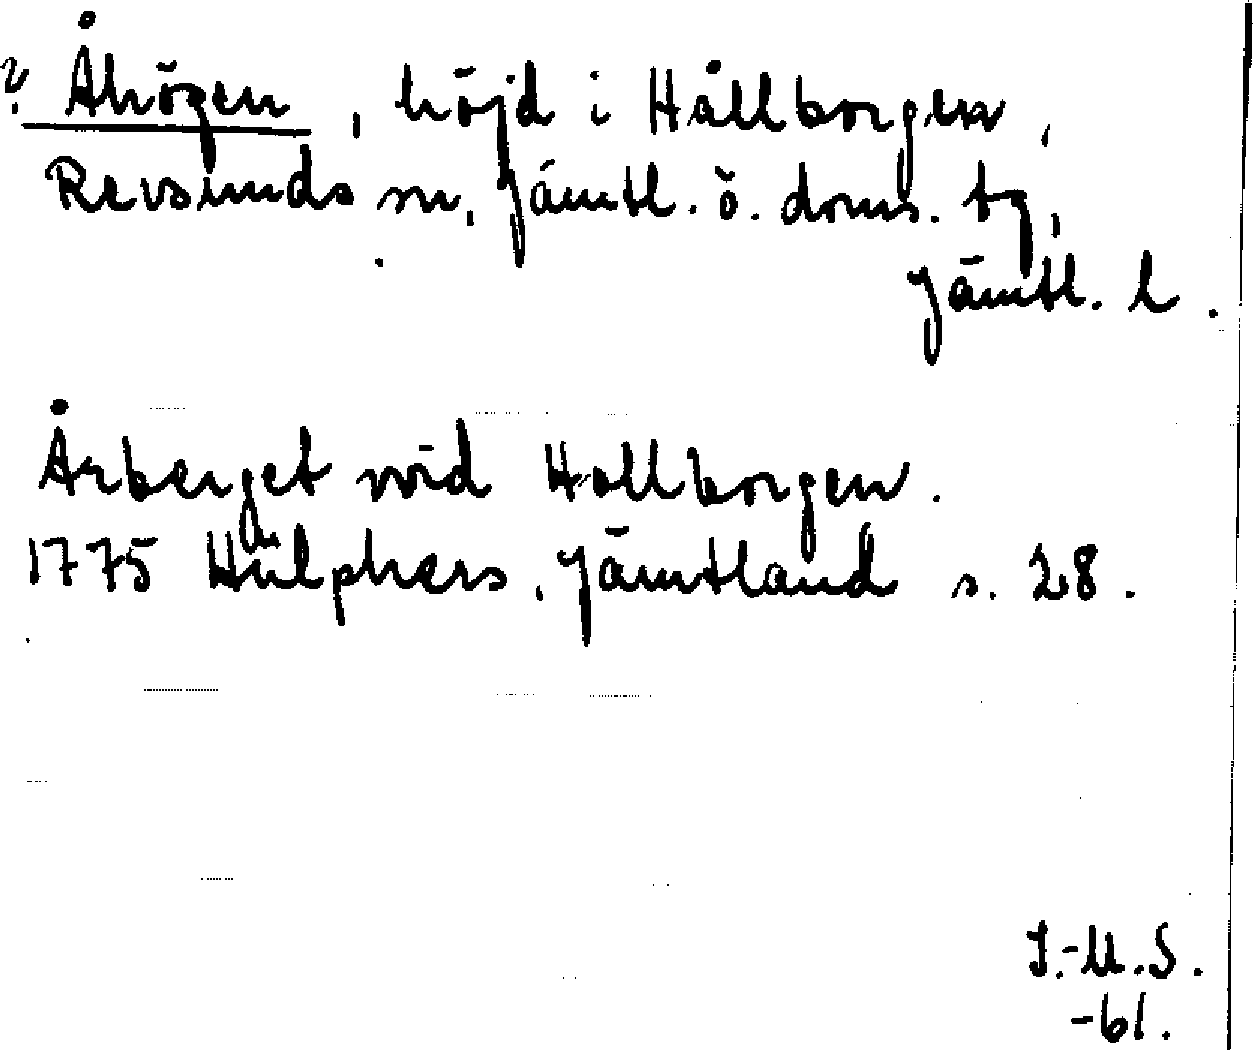 ? Åhögen, höjd i Hållborgen,
Revsunds sn, Jämtl. ö. doms. tg,
Jämtl. l.
Årberget wid Hallborgen.
1775 Hülphers, Jämtland s. 28.
I.-M.S.
-61.